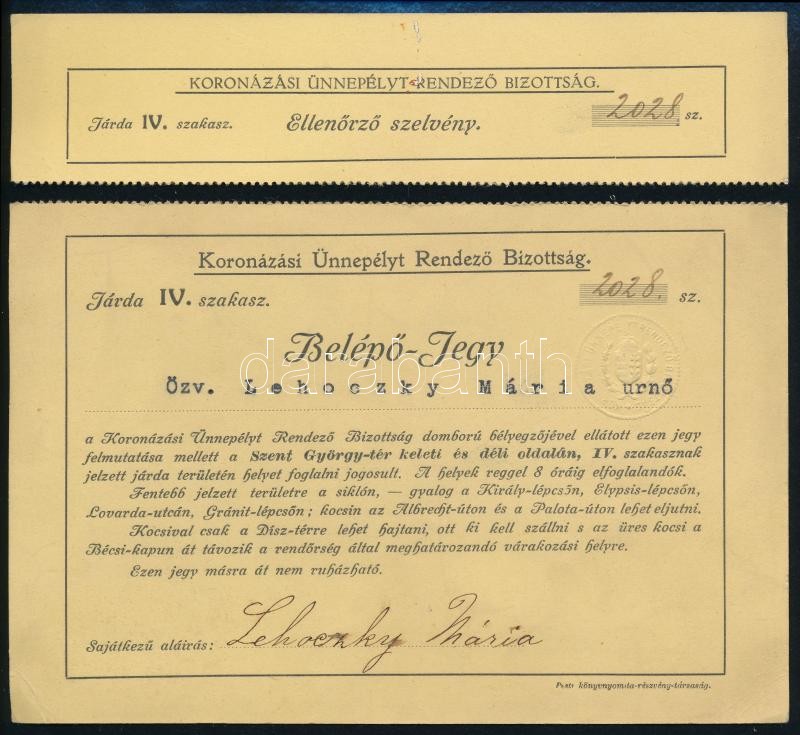 KORONÁZÁSI ÜNNEPÉLYT RENDEZŐ BIZOTTSÁG.
Járda IV. szakasz. Ellenőrző szelvény. 2028 sz.
Koronázási Ünnepélyt Rendező Bizottság.
Járda IV. szakasz. 2028. sz.
Belépő-Jegy
darabanth
Özv. Lehoczky Mária urnő
a Koronázási Ünnepélyt Rendező Bizottság domború bélyegzőjével ellátott ezen jegy
felmutatása mellett a Szent György-tér keleti és déli oldalán, IV. szakasznak
jelzett járda területén helyet foglalni jogosult. A helyek reggel 8 óráig elfoglalandók.
Fentebb jelzett területre a siklón, — gyalog a Király-lépcsőn, Elypsis-lépcsőn,
Lovarda-utcán, Gránit-lépcsőn; kocsin az Albrecht-úton és a Palota-úton lehet eljutni.
Kocsival csak a Disz-térre lehet hajtani, ott ki kell szállni s az üres kocsi a
Bécsi-kapun át távozik a rendőrség által meghatározandó várakozási helyre.
Ezen jegy másra át nem ruházható.
Sajátkezű aláirás: Lehoczky Mária
Pesti könyvnyomda-részvény-társaság.